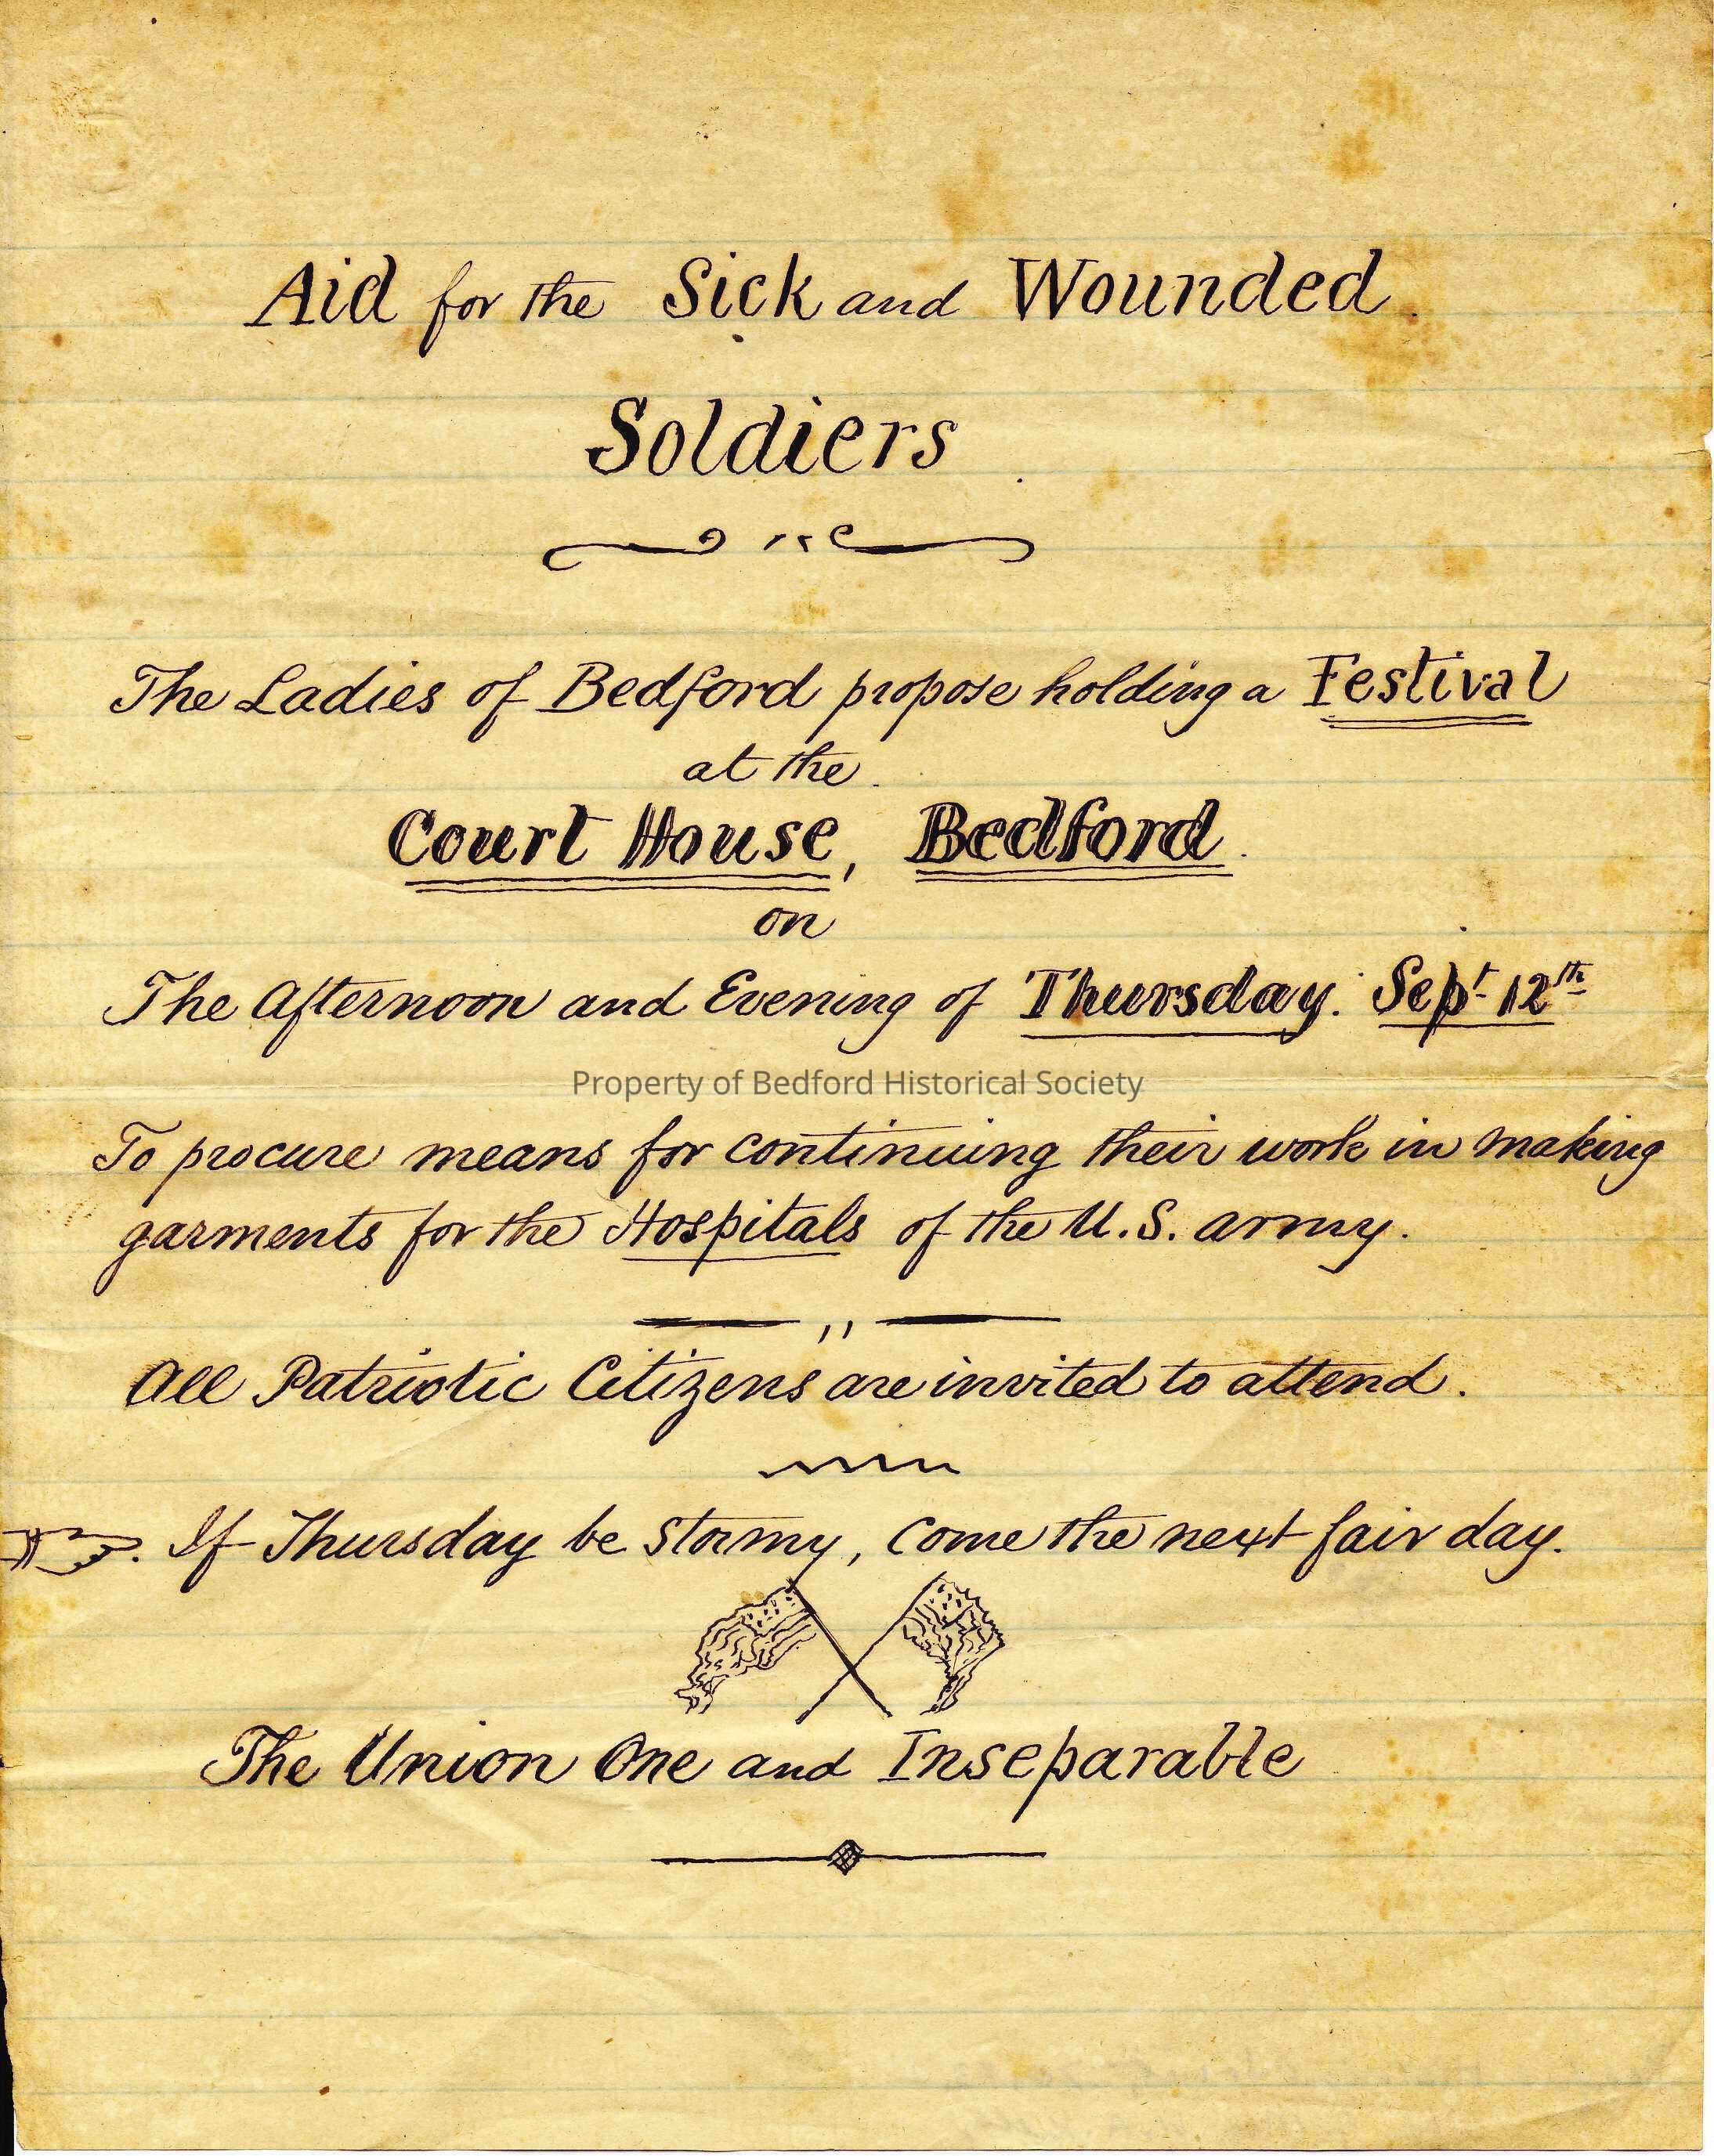 Aid for the Sick and Wounded.
Soldiers
The Ladies of Bedford propose holding a Festival
at the
Court House, Bedford.
on
The Afternoon and Evening of Thursday. Sept 12th
Property of Bedford Historical Society
To procure means for continuing their work in making
garments for the Hospitals of the U.S. army.
All Patriotic Citizens are invited to attend.
If Thursday be stormy, come the next fair day.
The Union One and Inseparable